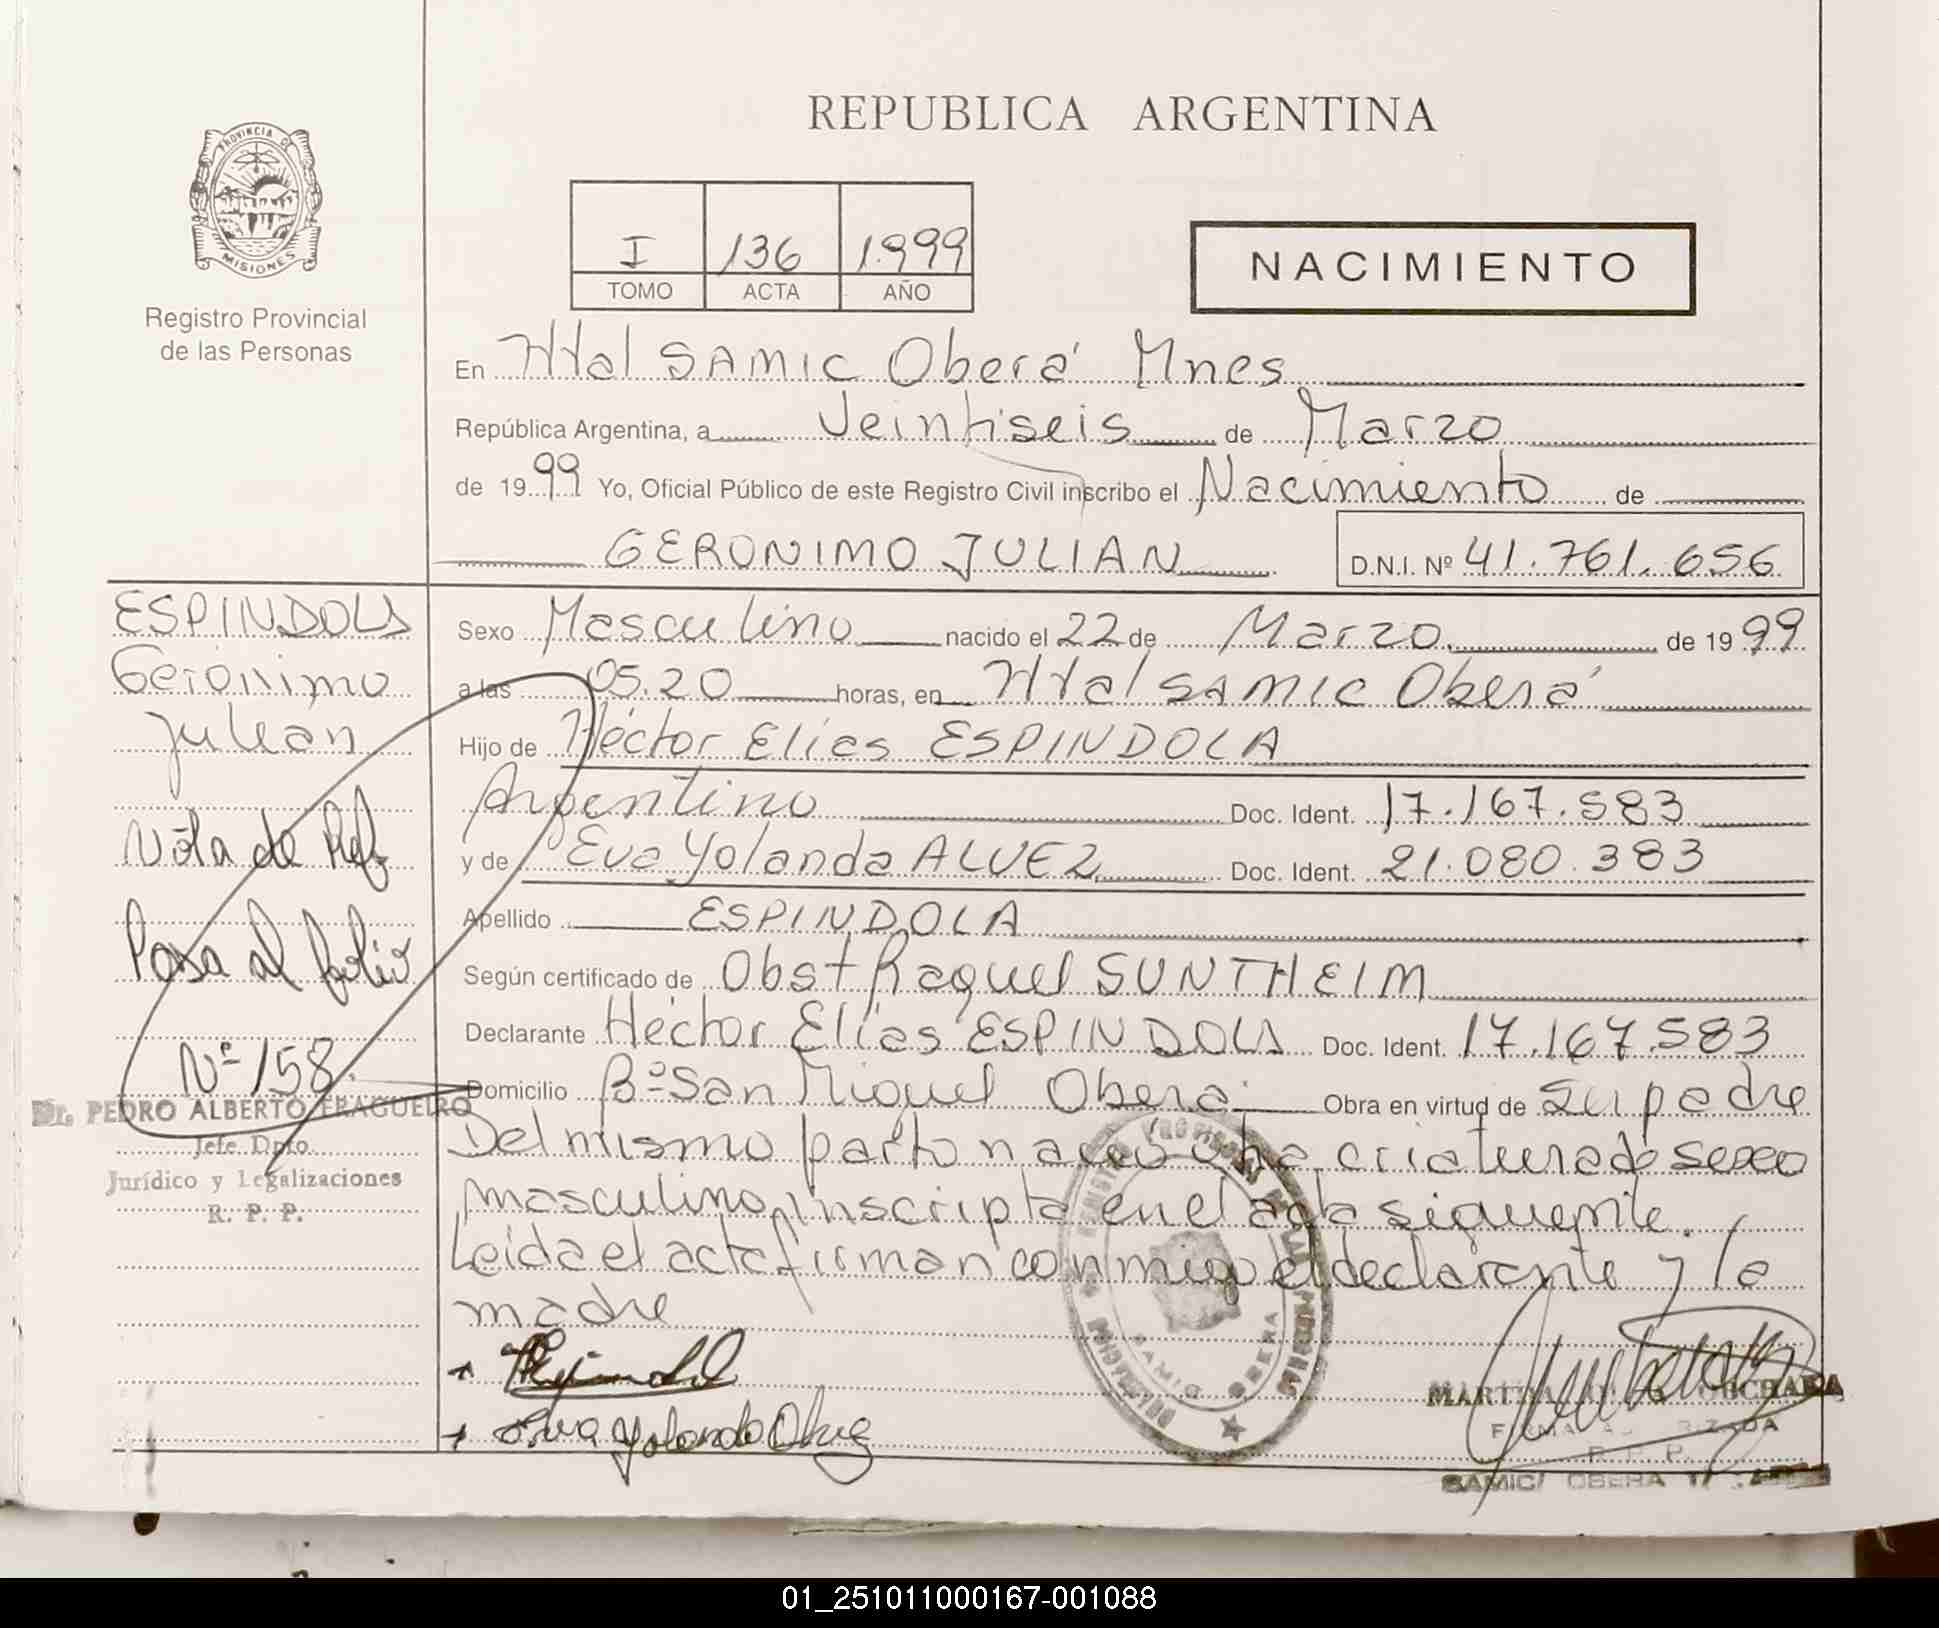 REPUBLICA ARGENTINA
PROVINCIA DE
MISIONES
Registro Provincial
de las Personas
I 136 1.999
TOMO ACTA AÑO
NACIMIENTO
En Htal SAMIC Oberá Mnes
República Argentina, a Veintiseis de Marzo
de 1999 Yo, Oficial Público de este Registro Civil inscribo el Nacimiento de
GERONIMO JULIAN D.N.I. Nº 41.761.656
ESPINDOLA
Gerónimo
Julian
Nota de Ref
Pasa al folio
Nº 158.
Dr. PEDRO ALBERTO FRAGUEIRO
Jefe Dpto.
Jurídico y Legalizaciones
R. P. P.
Sexo Masculino nacido el 22 de Marzo de 1999
a las 05.20 horas, en Htal SAMIC Oberá
Hijo de Héctor Elías ESPINDOLA
Argentino Doc. Ident. 17.167.583
y de Eva Yolanda ALVEZ Doc. Ident. 21.080.383
Apellido ESPINDOLA
Según certificado de Obst Raquel SUNTHEIM
Declarante Héctor Elías ESPINDOLA Doc. Ident. 17.167.583
Domicilio Bº San Miguel Oberá Obra en virtud de su padre
Del mismo parto nació otra criatura de sexo
masculino, inscripta en el acta siguiente.
Leida el acta firman conmigo el declarante y la
madre
Eva Yolanda Alvez
SAMIC OBERA
MARTINA
FIRMA AUTORIZADA
R. P. P.
SAMIC OBERA
01_251011000167-001088